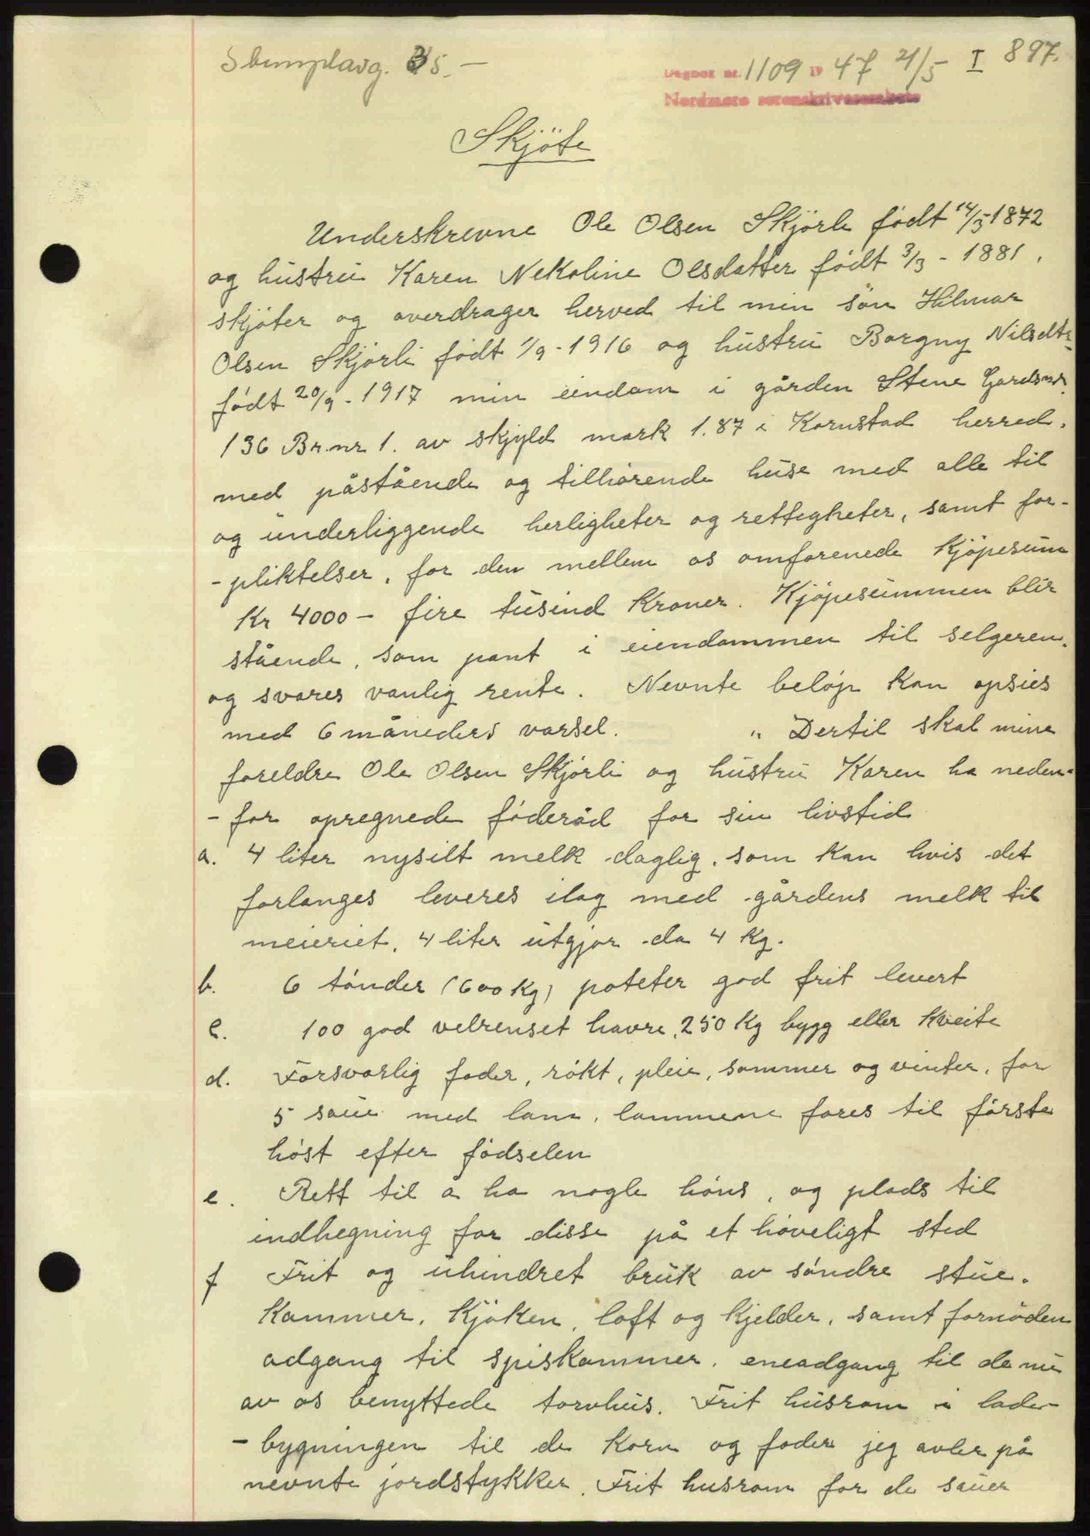 Stemplavg. 35.—
Dagbok nr. 1109 1947 21/5 I 897.
Nordmøre sorenskriverembete
Skjöte
Underskrevne Ole Olsen Skjörli födt 14/5 1872
og hustru Karen Nekoline Olsdatter födt 3/3 - 1881.
skjöter og overdrager herved til min sön Hilmar
Olsen Skjörli födt 1/9 - 1916 og hustru Borgny Nilsdtr.
födt 20/9 - 1917 min eindom i gården Stene Gardsnr.
136 Br.nr 1. av skyld mark 1.87 i Kornstad herred.
med påstående og tilhörende huse med alle til
og underliggende herligheter og rettigheter, samt for-
-pliktelser, for den mellem os omforenede Kjöpesum
Kr 4000 - fire tusind Kroner. Kjöpesummen blir
stående, som pant i eiendommen til selgeren.
og svares vanlig rente. Nevnte belöp Kan opsies
med 6 måneders varsel. „ Dertil skal mine
foreldre Ole Olsen Skjörli og hustru Karen ha neden-
-for opregnede föderåd for sin livstid
a. 4 liter nysilt melk daglig, som Kan hvis det
forlanges leveres ilag med gårdens melk til
meieriet, 4 liter utgjör da 4 Kg.
b. 6 tönder (600 Kg) poteter god frit levert
c. 100 god velrenset havre, 250 Kg bygg eller Kveite
d. Forsvarlig foder, rökt, pleie, sommer og vinter, for
5 saue med lam, lammene fores til förste
höst efter födselen
e. Rett til å ha nogle höns, og plads til
indhegning for disse på et höveligt sted
f Frit og uhindret bruk av söndre stue.
Kammer, Kjöken, loft og Kjelder, samt fornöden
adgang til spiskammer, eneadgang til de nu
av os benyttede torvhus. Frit husrom i lade-
-bygningen til de Korn og foder jeg avler på
nevnte jordstykker. Frit husrom for de sauer